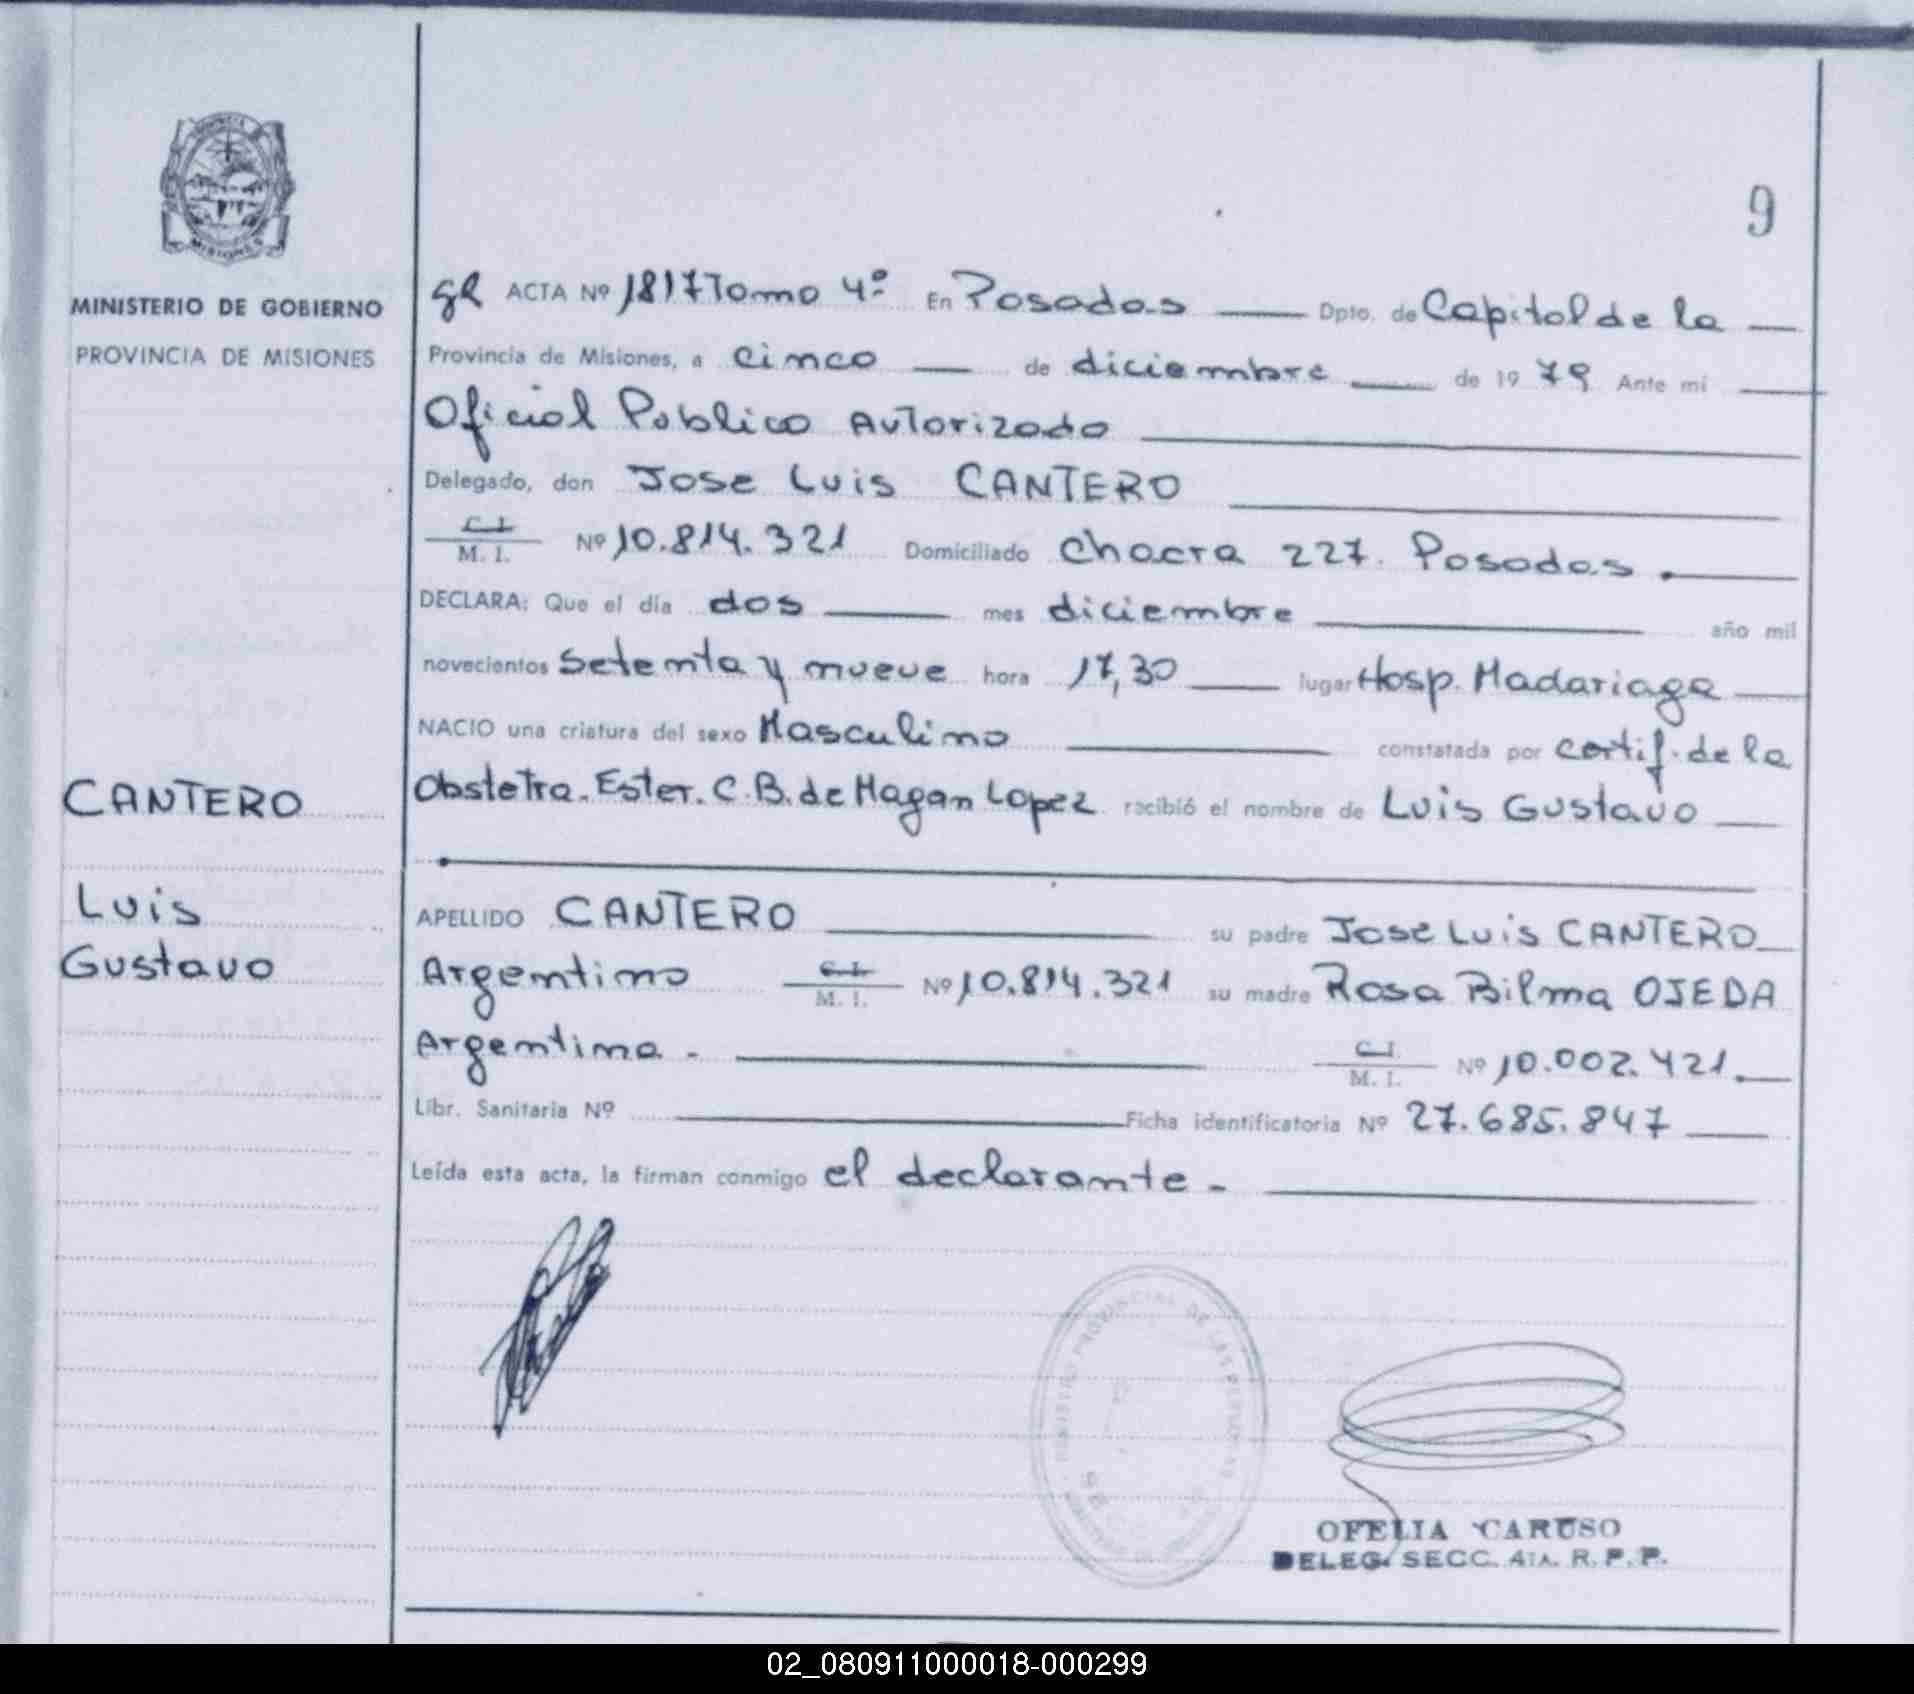 9
PROVINCIA DE
MISIONES
MINISTERIO DE GOBIERNO
PROVINCIA DE MISIONES
gR ACTA Nº 1817 Tomo 4º En Posadas Dpto. de Capital de la
Provincia de Misiones, a cinco de diciembre de 1979 Ante mí
Oficial Publico Autorizado
Delegado, don Jose Luis CANTERO
C.I.
M. I. Nº 10.814.321 Domiciliado Chacra 227. Posadas.
DECLARA: Que el día dos mes diciembre año mil
novecientos setenta y nueve hora 17,30 lugar Hosp. Madariaga
NACIO una criatura del sexo Masculino constatada por certif. de la
Obstetra. Ester. C.B. de Magan Lopez recibió el nombre de Luis Gustavo
CANTERO
Luis
Gustavo
APELLIDO CANTERO su padre Jose Luis CANTERO
Argentino C.I.
M. I. Nº 10.814.321 su madre Rosa Bilma OJEDA
Argentina. C.I.
M. I. Nº 10.002.421.
Libr. Sanitaria Nº Ficha identificatoria Nº 27.685.847
Leída esta acta, la firman conmigo el declarante.
PROVINCIAL DE LAS PERSONAS
SECC.
OFELIA CARUSO
DELEG. SECC. 4TA. R. P. P.
02_080911000018-000299